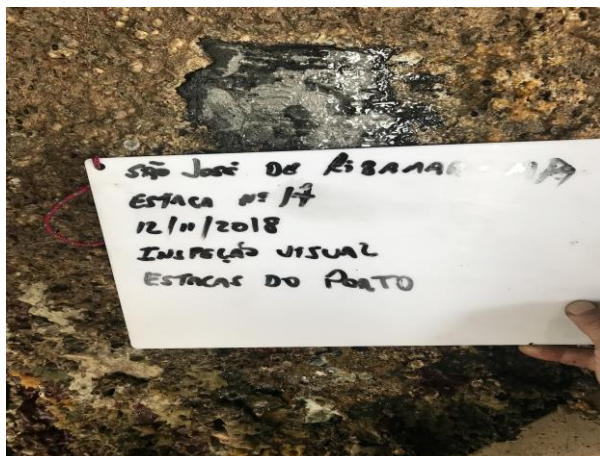 SÃO JOSÉ DE RIBAMAR MA
ESTACA Nº 17
12/11/2018
INSPEÇÃO VISUAL
ESTACAS DO PORTO